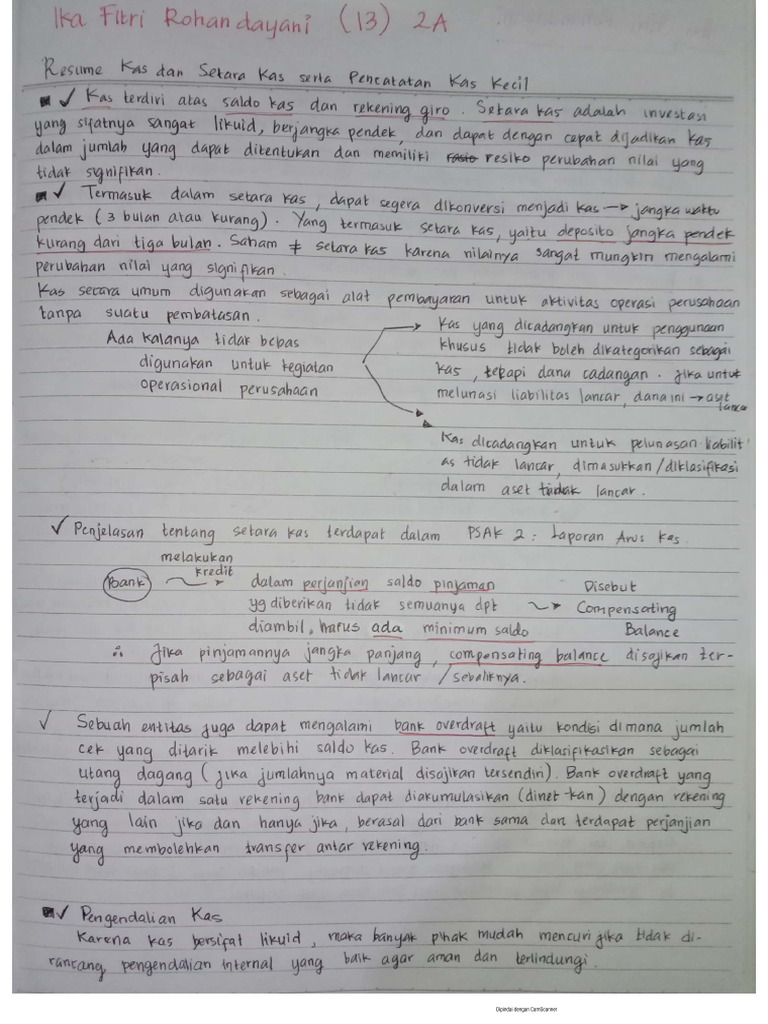 Ika Fitri Rohandayani (13) 2A
Resume Kas dan Setara Kas serta Pencatatan Kas Kecil
✓ Kas terdiri atas saldo kas dan rekening giro. Setara kas adalah investasi
yang sifatnya sangat likuid, berjangka pendek, dan dapat dengan cepat dijadikan kas
dalam jumlah yang dapat ditentukan dan memiliki resiko perubahan nilai yang
tidak signifikan.
✓ Termasuk dalam setara kas, dapat segera dikonversi menjadi kas → jangka waktu
pendek (3 bulan atau kurang). Yang termasuk setara kas, yaitu deposito jangka pendek
kurang dari tiga bulan. Saham ≠ setara kas karena nilainya sangat mungkin mengalami
perubahan nilai yang signifikan.
Kas secara umum digunakan sebagai alat pembayaran untuk aktivitas operasi perusahaan
tanpa suatu pembatasan.
Ada kalanya tidak bebas
digunakan untuk kegiatan
operasional perusahaan
Kas yang dicadangkan untuk penggunaan
khusus tidak boleh dikategorikan sebagai
kas, tetapi dana cadangan. Jika untuk
melunasi liabilitas lancar, dana ini → aset
lancar
Kas dicadangkan untuk pelunasan liabilit
as tidak lancar, dimasukkan/diklasifikasi
dalam aset tidak lancar.
✓ Penjelasan tentang setara kas terdapat dalam PSAK 2: Laporan Arus Kas.
Bank
melakukan
kredit
dalam perjanjian saldo pinjaman
yg diberikan tidak semuanya dpt
diambil, harus ada minimum saldo
Disebut
Compensating
Balance
∴ Jika pinjamannya jangka panjang, compensating balance disajikan ter-
pisah sebagai aset tidak lancar / sebaliknya.
✓ Sebuah entitas juga dapat mengalami bank overdraft yaitu kondisi dimana jumlah
cek yang ditarik melebihi saldo kas. Bank overdraft diklasifikasikan sebagai
utang dagang (jika jumlahnya material disajikan tersendiri). Bank overdraft yang
terjadi dalam satu rekening bank dapat diakumulasikan (dinet-kan) dengan rekening
yang lain jika dan hanya jika, berasal dari bank sama dan terdapat perjanjian
yang membolehkan transfer antar rekening.
✓ Pengendalian Kas
Karena kas bersifat likuid, maka banyak pihak mudah mencuri jika tidak di-
rancang pengendalian internal yang baik agar aman dan terlindungi.
Dipindai dengan CamScanner